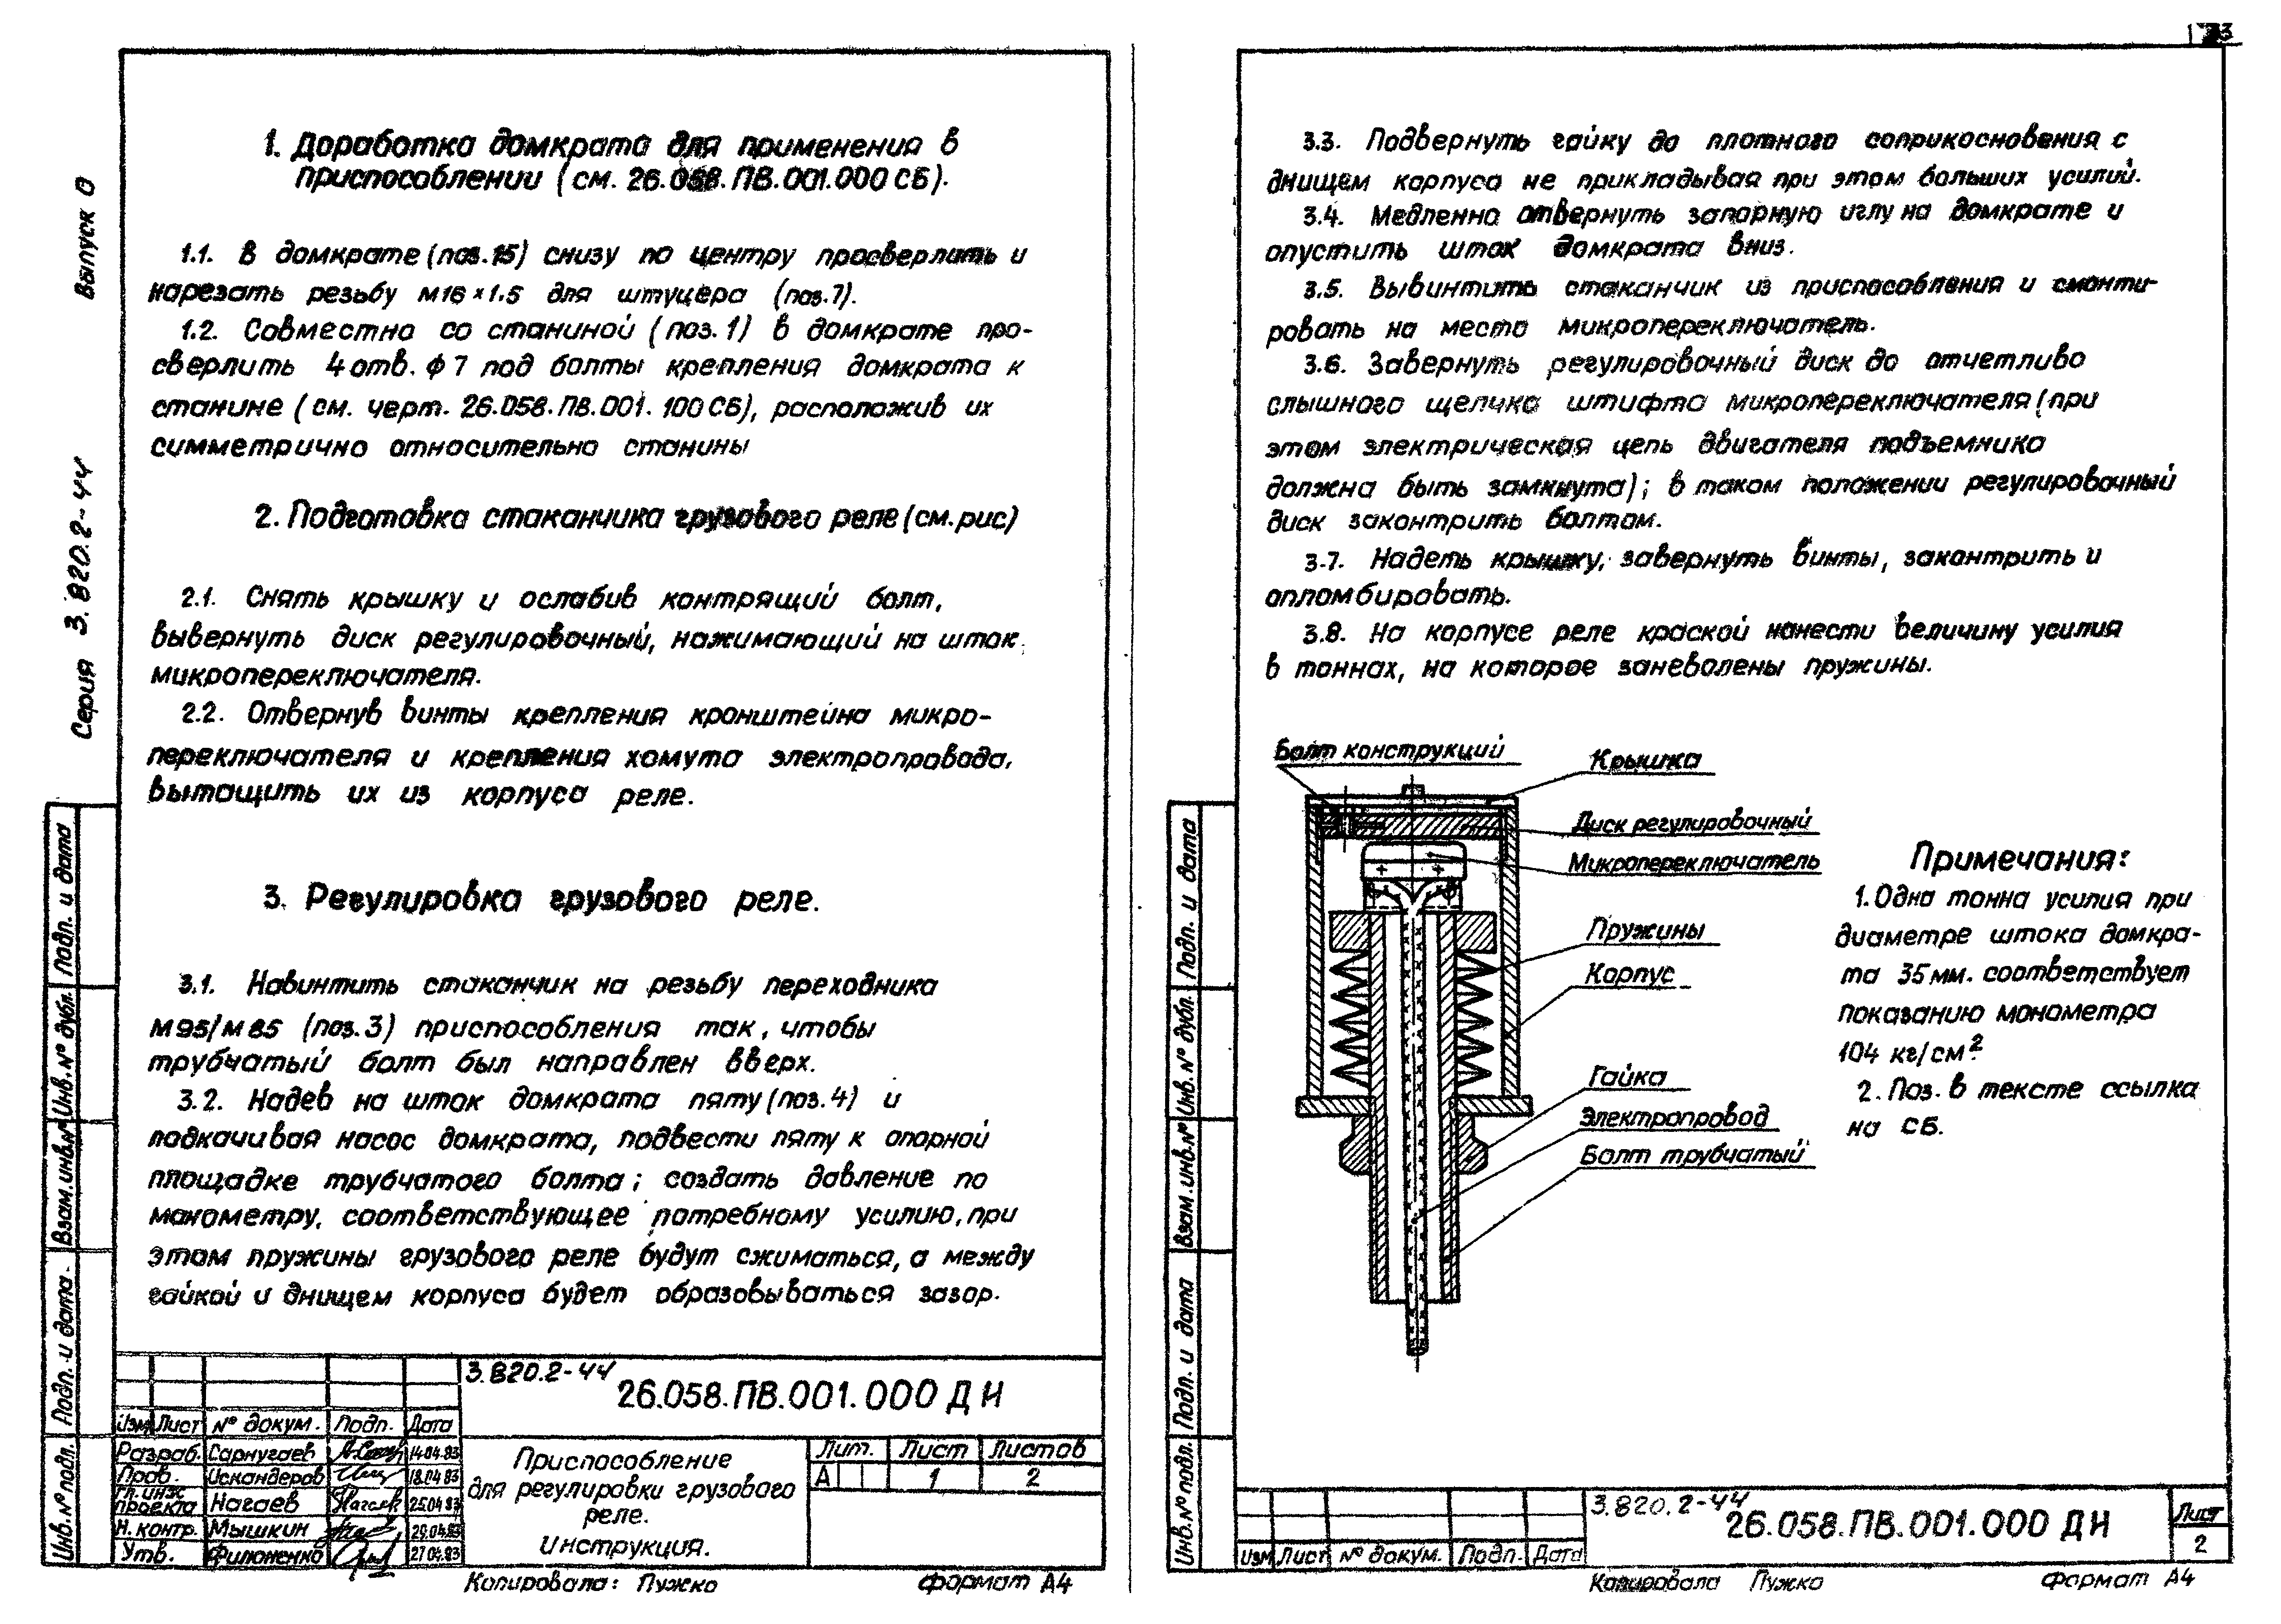 Выпуск 0
Серия 3.820.2-44
1. Доработка домкрата для применения в
приспособлении (см. 26.058.ПВ.001.000 СБ).
1.1. В домкрате (поз.15) снизу по центру просверлить и
нарезать резьбу М16×1.5 для штуцера (поз.7).
1.2. Совместно со станиной (поз.1) в домкрате про-
сверлить 4 отв. ф 7 под болты крепления домкрата к
станине (см. черт. 26.058.ПВ.001.100 СБ), расположив их
симметрично относительно станины
2. Подготовка стаканчика грузового реле (см.рис)
2.1. Снять крышку и ослабив контрящий болт,
вывернуть диск регулировочный, нажимающий на шток
микропереключателя.
2.2. Отвернув винты крепления кронштейна микро-
переключателя и крепления хомута электропровода,
вытащить их из корпуса реле.
3. Регулировка грузового реле.
3.1. Навинтить стаканчик на резьбу переходника
М95/М85 (поз.3) приспособления так, чтобы
трубчатый болт был направлен вверх.
3.2. Надев на шток домкрата пяту (поз.4) и
подкачивая насос домкрата, подвести пяту к опорной
площадке трубчатого болта; создать давление по
манометру, соответствующее потребному усилию, при
этом пружины грузового реле будут сжиматься, а между
гайкой и днищем корпуса будет образовываться зазор.
Подп. и дата
Инв. № дубл.
Взам. инв. №
Подп. и дата
Инв. № подл.
3.820.2-44
26.058.ПВ.001.000 Д И
Изм Лист № докум. Подп. Дата
Разраб. Сарнугаев 14.04.83
Пров. Искандеров 18.04.83
Гл. инж. проекта Нагаев Нагаев 25.04.83
Н. контр. Мышкин 29.04.83
Утв. Филоненко 27.04.83
Приспособление
для регулировки грузового
реле.
Инструкция.
Лит. Лист Листов
А 1 2
Копировала: Пужко Формат А4
3.3. Подвернуть гайку до плотного соприкосновения с
днищем корпуса не прикладывая при этом больших усилий.
3.4. Медленно отвернуть запорную иглу на домкрате и
опустить шток домкрата вниз.
3.5. Вывинтить стаканчик из приспособления и смонти-
ровать на место микропереключатель.
3.6. Завернуть регулировочный диск до отчетливо
слышного щелчка штифта микропереключателя (при
этом электрическая цепь двигателя подъемника
должна быть замкнута); в таком положении регулировочный
диск законтрить болтом.
3.7. Надеть крышку, завернуть винты, законтрить и
опломбировать.
3.8. На корпусе реле краской нанести величину усилия
в тоннах, на которое заневолены пружины.
Болт конструкций
Крышка
Диск регулировочный
Микропереключатель
Пружины
Корпус
Гайка
Электропровод
Болт трубчатый
Примечания:
1. Одна тонна усилия при
диаметре штока домкра-
та 35 мм. соответствует
показанию монометра
104 кг/см².
2. Поз. в тексте ссылка
на СБ.
Подп. и дата
Инв. № дубл.
Взам. инв. №
Подп. и дата
Инв. № подл.
3.820.2-44
26.058.ПВ.001.000 Д И
Изм Лист № докум. Подп. Дата
Лист
2
Копировала Пужко Формат А4